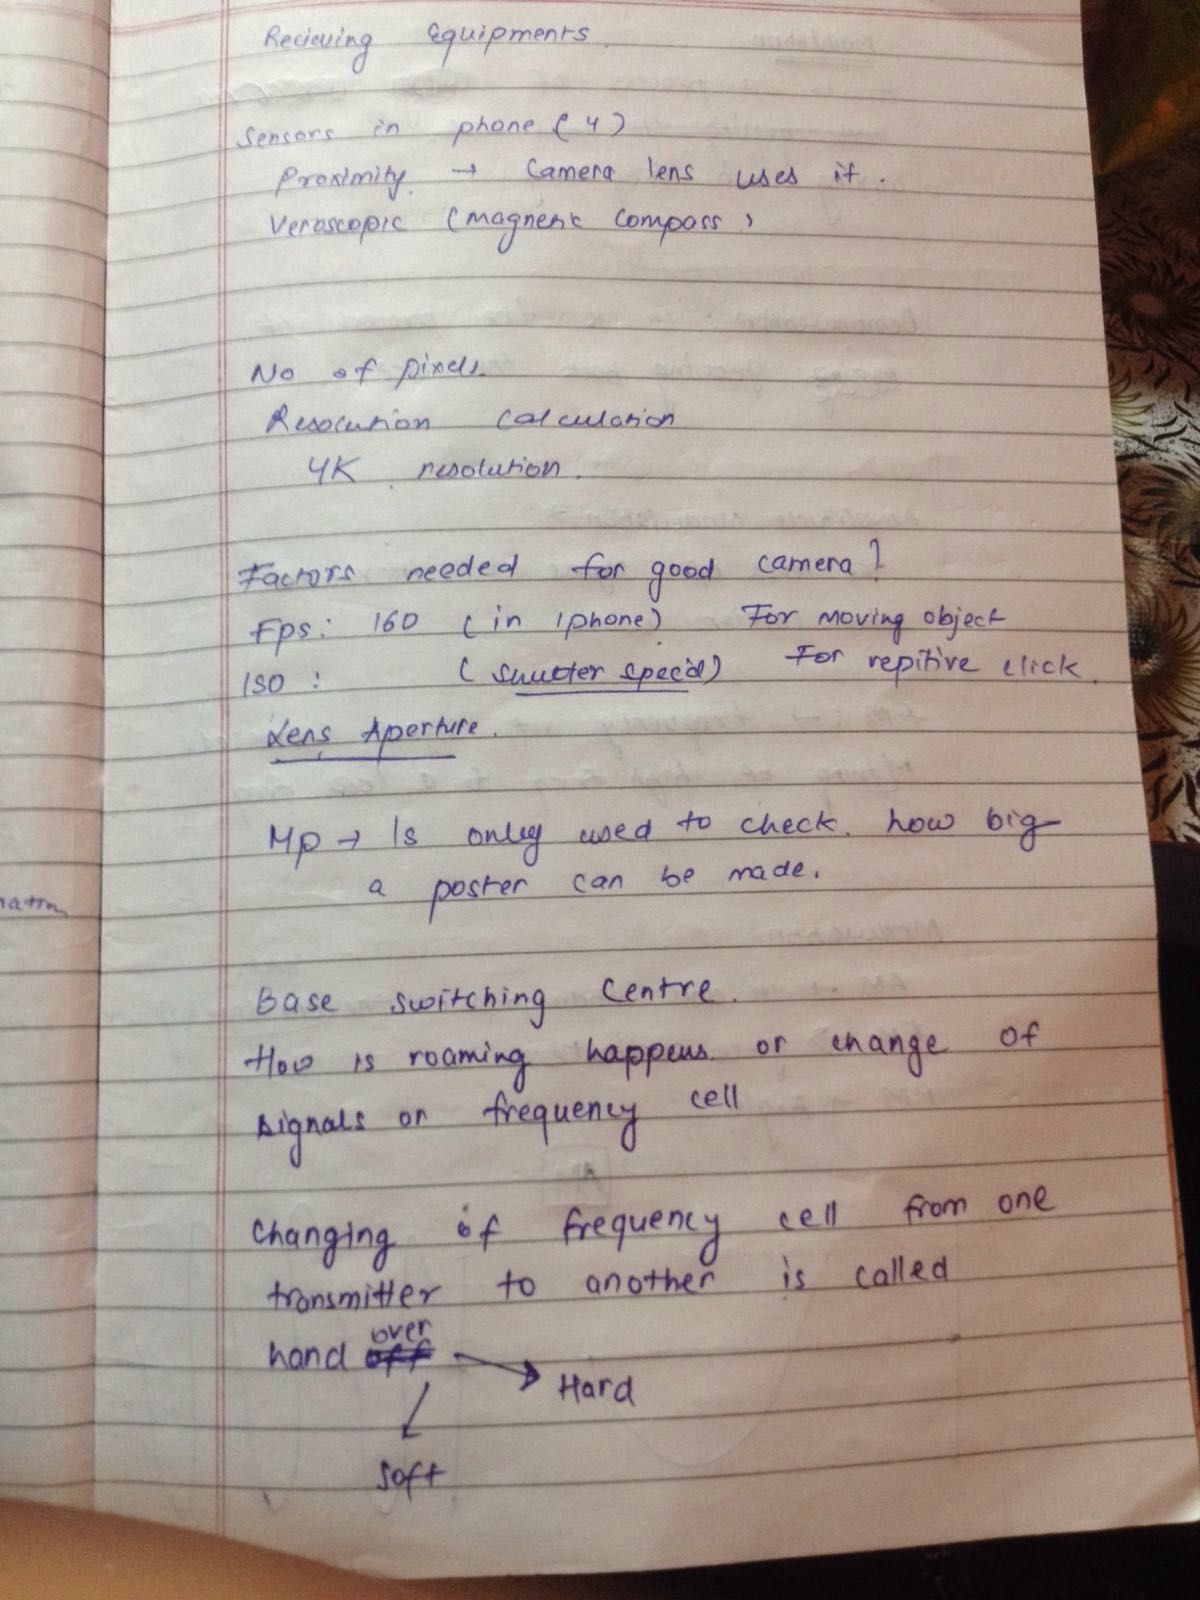 Recieving Equipments
Sensors in phone (4)
Proximity → Camera lens uses it.
Veroscopic (magnetic compass)
No of pixels
Resolution calculation
4K resolution.
Factors needed for good camera?
Fps: 160 (in iphone) For moving object
ISO : (shutter speed) For repitive click.
Lens Aperture.
Mp → Is only used to check. how big
a poster can be made.
Base switching Centre.
How is roaming happens or change of
signals or frequency cell
Changing of frequency cell from one
transmitter to another is called
hand over → Hard
Soft